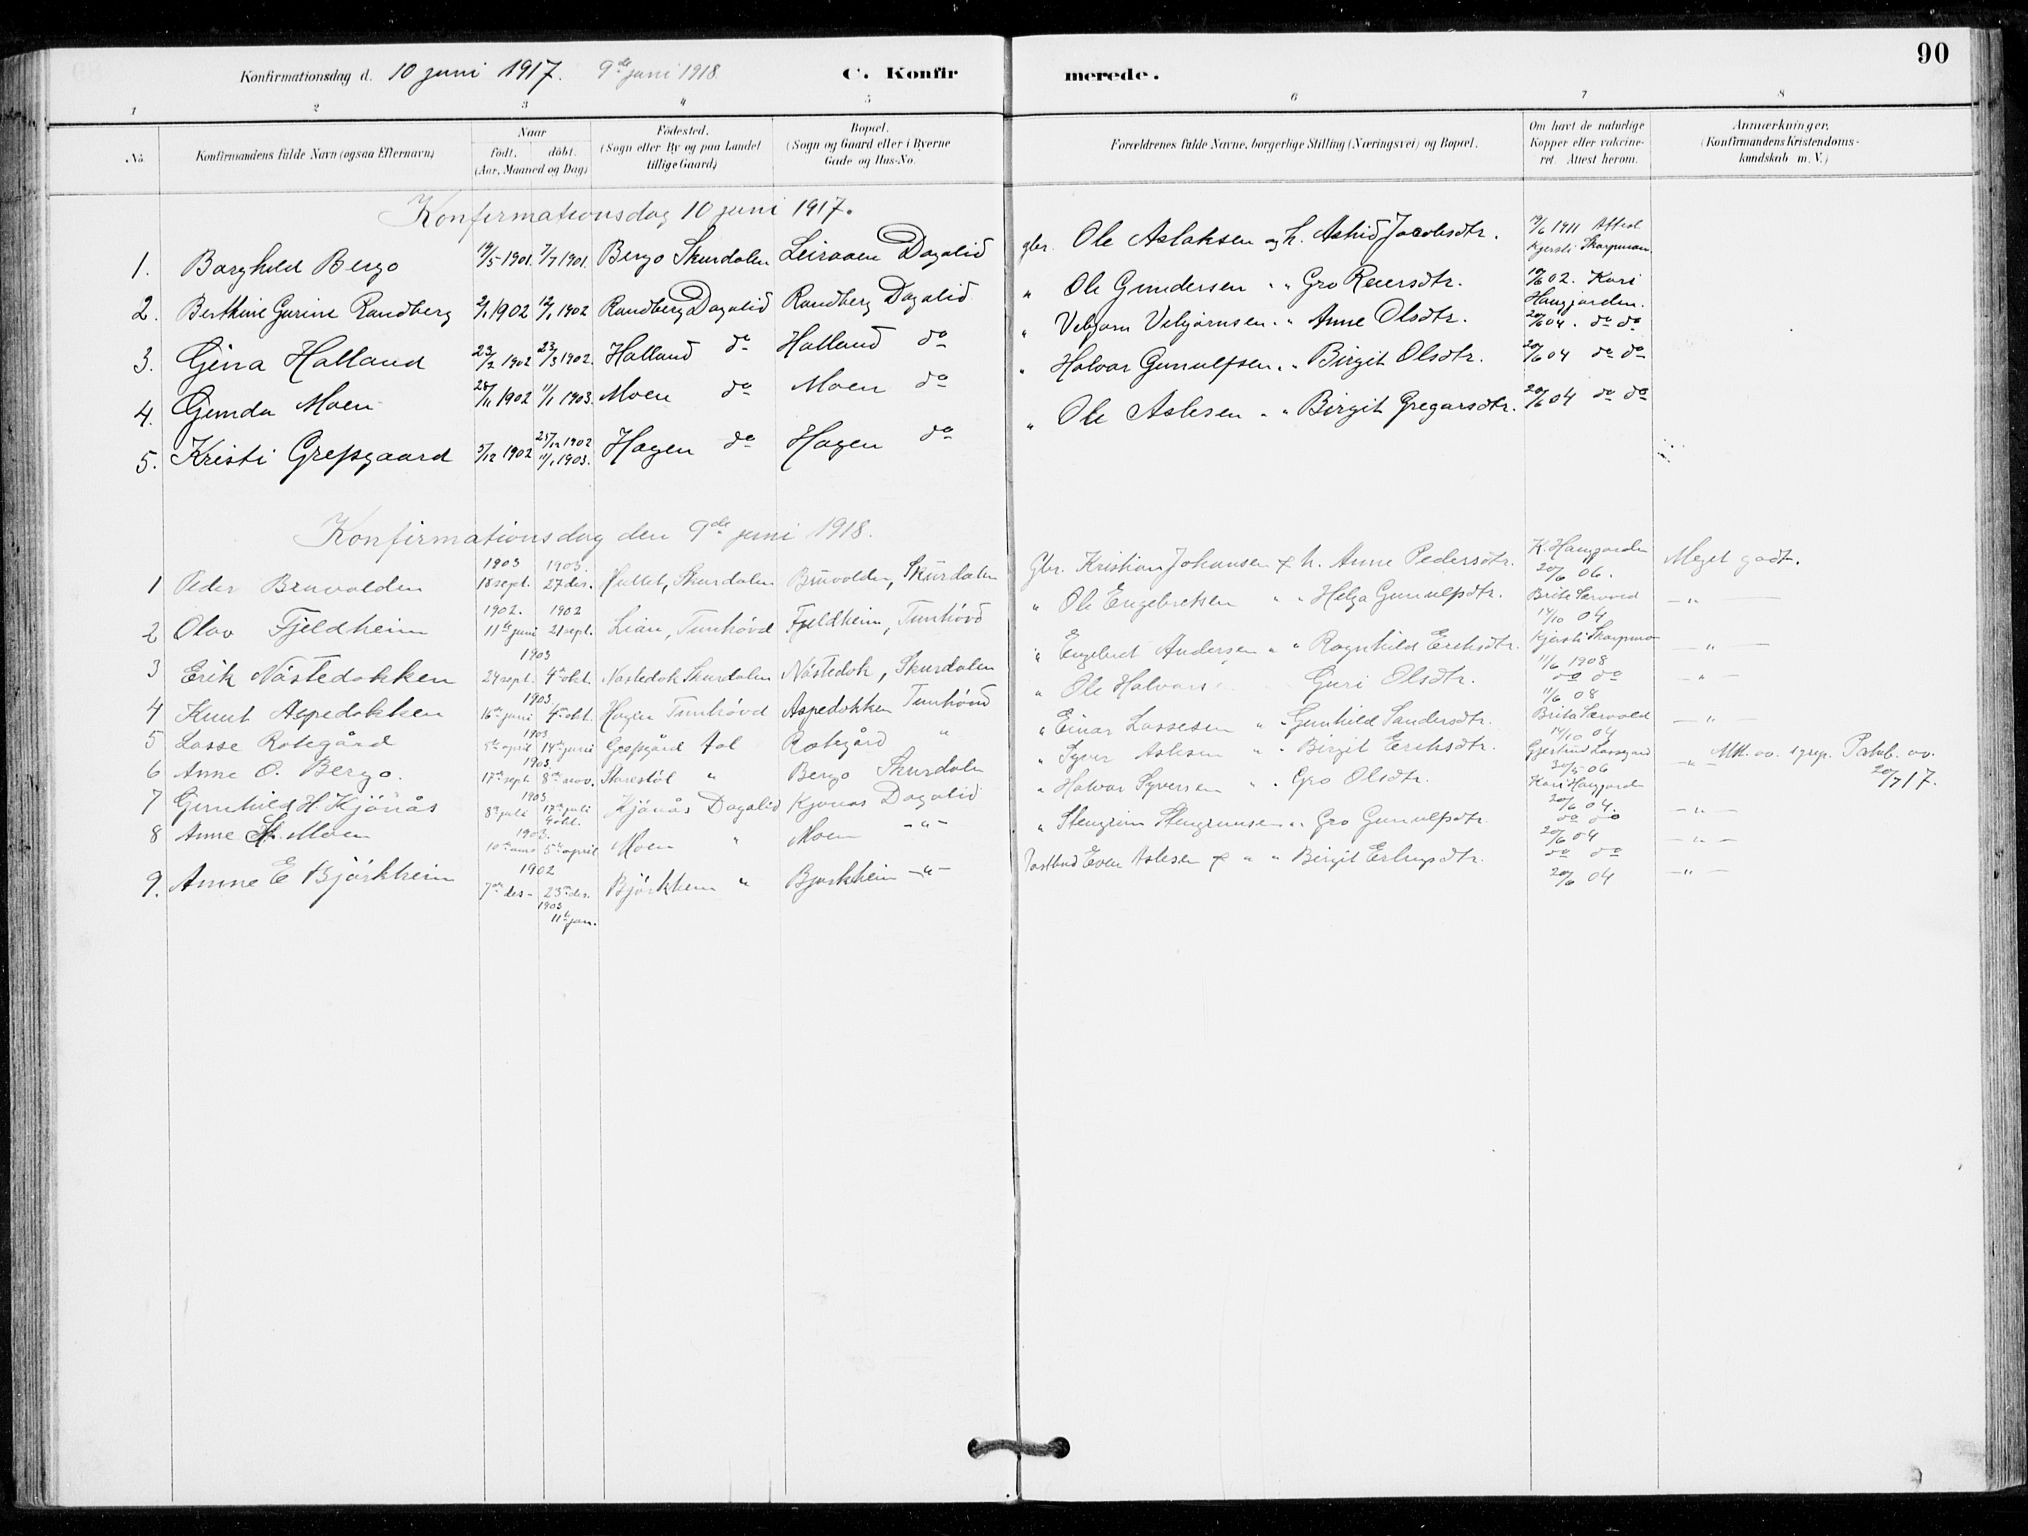 90
Konfirmationsdag d. 10 juni 1917. 9de juni 1918. C. Konfirmerede.
1 2 3 4 5 6 7 8
No. Konfirmandens fulde Navn (ogsaa Efternavn) Naar født. døbt. (Aar, Maaned og Dag) Fødested. (Sogn eller By og paa Landet tillige Gaard) Bopæl. (Sogn og Gaard eller i Byerne Gade og Hus-No. Forældrenes fulde Navne, borgerlige Stilling (Næringsvei) og Bopæl. Om havt de naturlige Kopper eller vakcineret. Attest herom. Anmærkninger. (Konfirmandens Kristendomskundskab m. V.)
Konfirmationsdag 10 juni 1917.
1. Borghild Bergo 19/5 1901. 7/7 1901. Bergo Skurdalen Leiraaen Dagalid gbr. Ole Aslaksen og h. Astrid Jacobsdtr. 19/6 1911 Attest Kjersti Skarpmoen
2. Berthine Gurine Randberg 2/1 1902 12/1 1902 Randberg Dagalid Randberg Dagalid " Ole Gundersen " " Gro Reiersdtr. 19/6 02. Kari Haugjorden.
3. Gina Halland 23/2 1902 23/3 1902. Halland do Halland do " Vebjørn Vebjørnsen " " Anne Olsdtr. 20/6 04. do do
4. Gunda Moen 28/11 1902 11/1 1903. Moen do Moen do " Halvar Gunulfsen " " Birgit Olsdtr. 20/6 04 do do
5. Kristi Grepsgaard 5/12 1902 25/12 1902 11/1 1903. Hagen do Hagen do " Ole Aslesen " " Birgit Gregarsdtr. 20/6 04 do do
Konfirmationsdag den 9de juni 1918.
1 Peder Bruvolden 1903 18 sept. 1903. 27 des. Hallet, Skurdalen Bruvolden, Skurdalen Gbr. Kristian Johansen & h. Anne Pedersdtr. K. Haugjorden 20/6 06. Meget godt.
2 Olav Fjeldheim 1902. 11te juni 1902 21 sept. Lian, Tunhövd Fjeldheim, Tunhövd " Ole Engebretsen " " Helga Gunulfsdtr. Brite Særvold 14/10 04 — " —
3 Erik Nåstedokken 1903 24 sept. 4de okt. Nastedok Skurdalen Nåstedok, Skurdalen " Engebret Andersen " " Ragnhild Eriksdtr. Kjersti Skarpmo 11/6 1908 — " —
4 Knut Aspedokken 1903 16de juni 4de okt. Hagen Tunhövd Aspedokken Tunhövd " Ole Halvars Guri Olsdtr. do do 11/6 08 — " —
5 Lasse Rotegård 1903 8de april 14de juni Grepsgård Aal Rotegård " " Einar Lassesen " " Gunhild Sandersdtr. Brita Særvold 14/10 04 — " —
6 Anne O. Bergo. 1903. 17de sept. 8de nov. Starestöl " Bergo Skurdalen " Syver Aslesen " " Birgit Eriksdtr. Gjertrud Lassegard 30/5 06 — " — Mtk. av. Patub. av. 20/7 17.
7 Gunhild H. Kjönås 1903 8de juli 17de juli 4 okt. Kjönås Dagalid Kjönås Dagalid " Halvar Syversen " " Gro Olsdtr. Kari Haugjorden 20/6 04. — " —
8 Anne St. Moen 1903. 5te april Moen " Moen — " — " Stengrim Stengrimsen " " Gro Gunulfsdtr. do do 20/6 04 — " —
9. Anne E Björkheim 1902 7de des. 23de des. 1903 11te jan. Björkheim " Bjorkheim — " — Even Aslesen & " " Birgit Erlingsdtr. do do 20/6 04 — " —